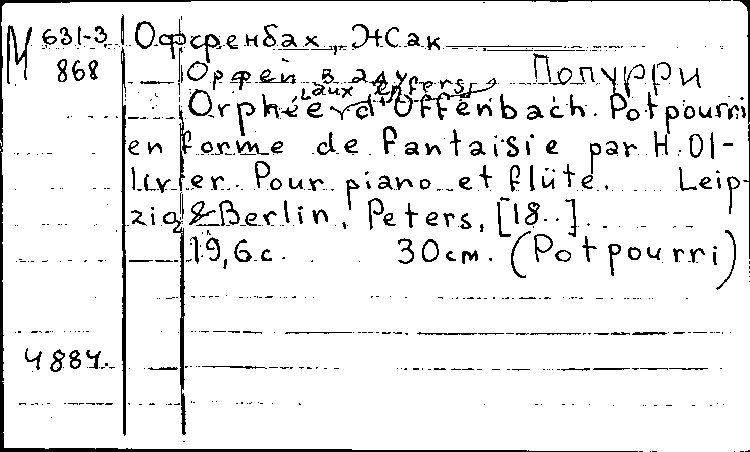 М 631-3 Оффренбах, Жак
868 Орфей в аду Попурри
(aux enfers)
Orphée d'Offenbach. Potpourri
en forme de fantaisie par H. Ol-
livier. Pour piano et flûte. Leip-
zig & Berlin, Peters, [18..].
19,6 с. 30 см. (Potpourri)
4884.